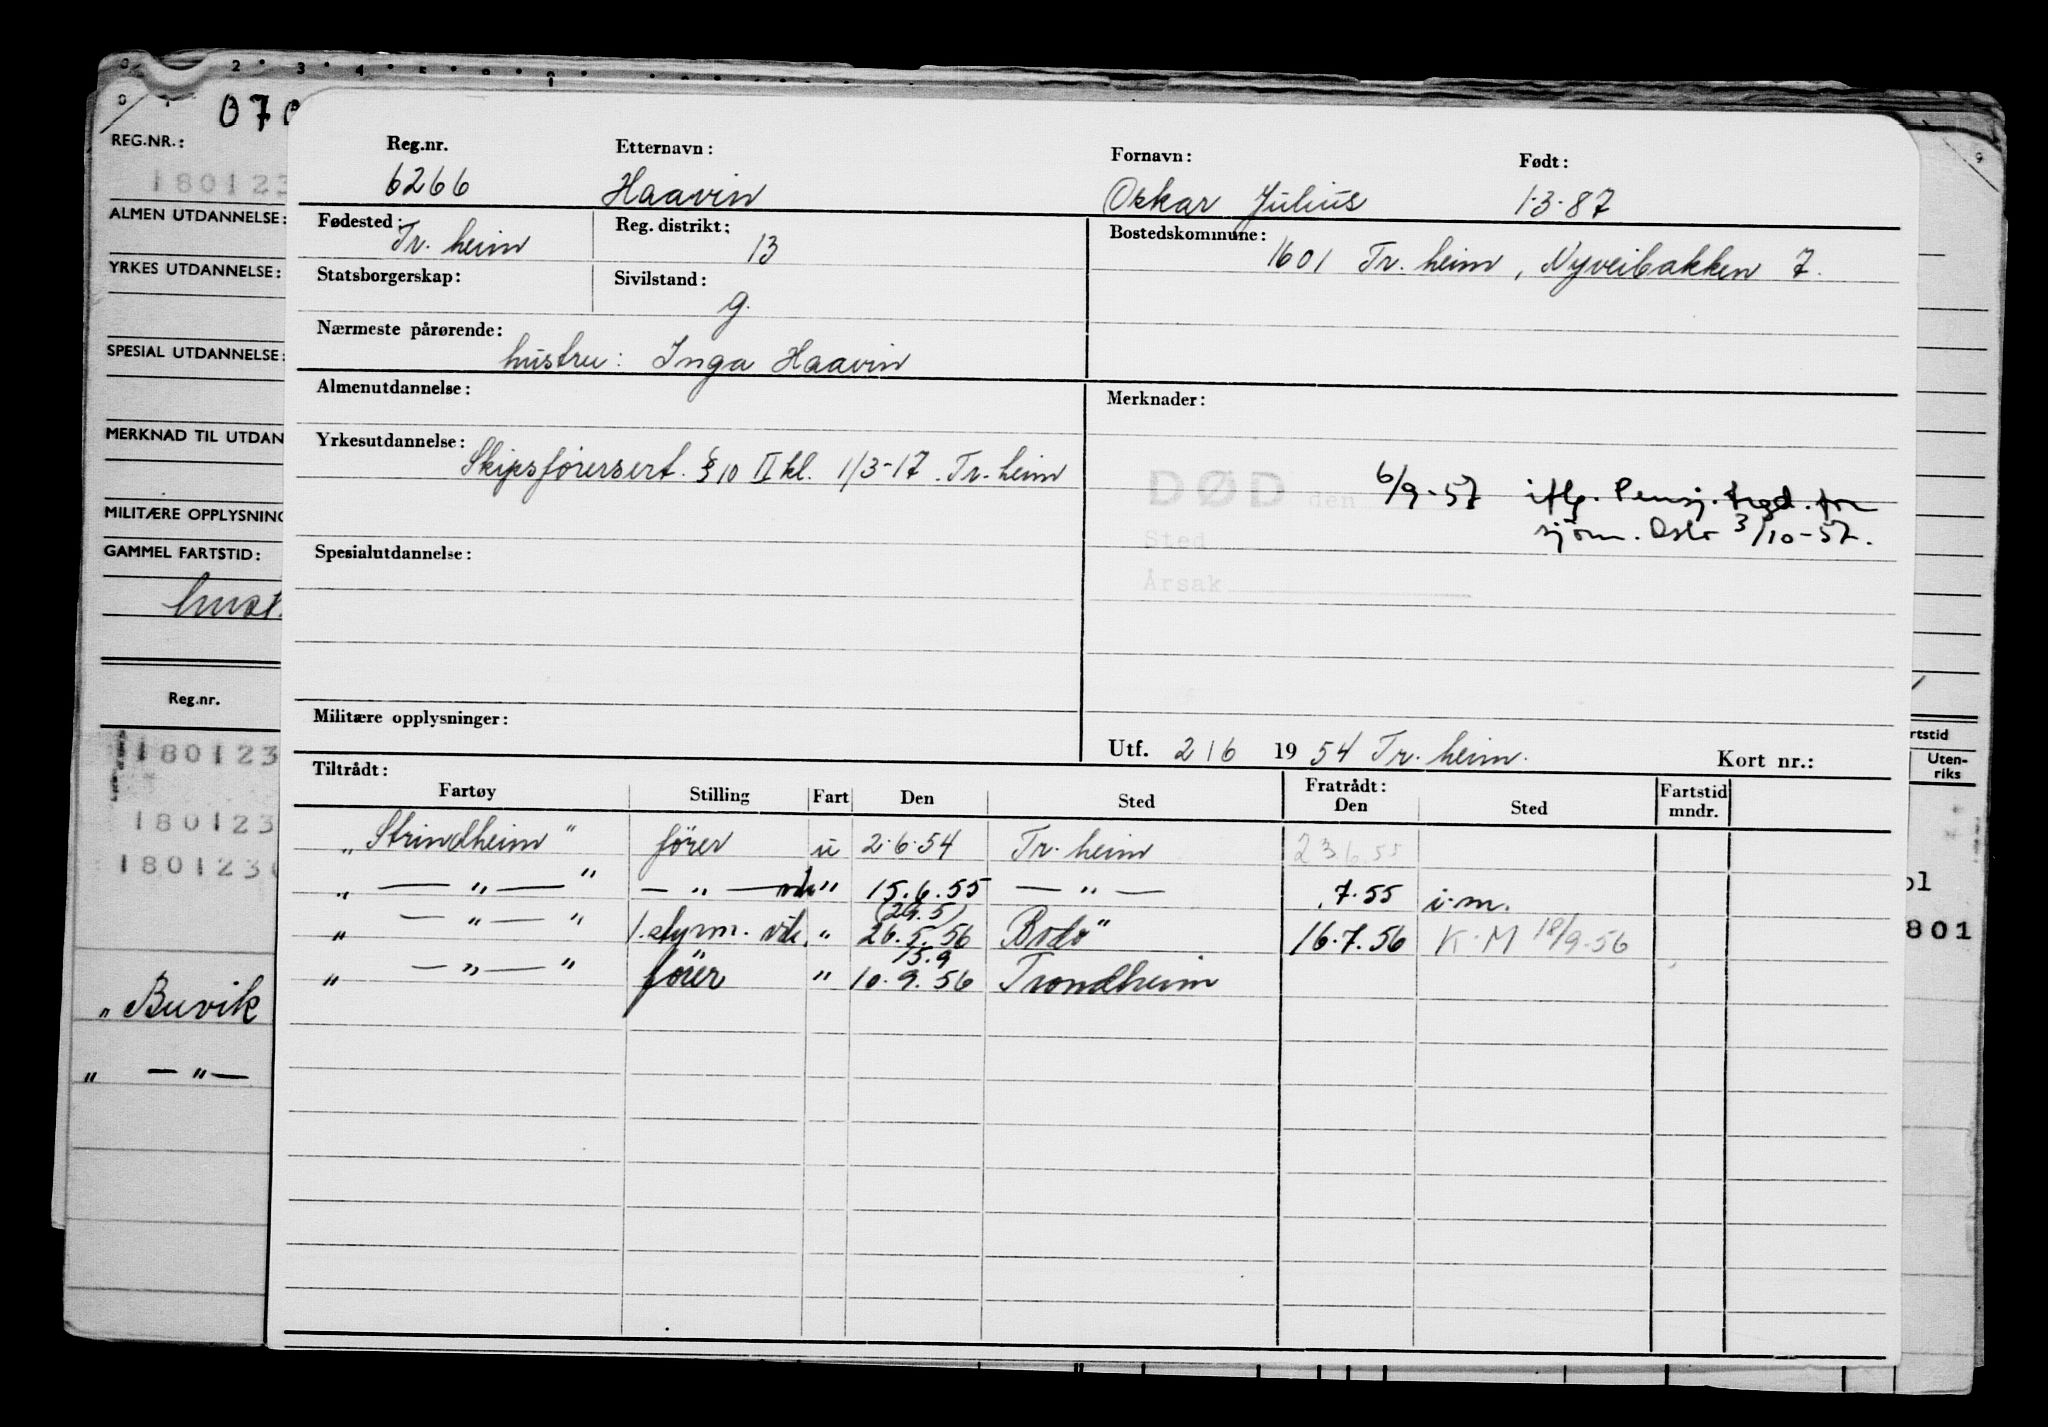 070
REG.NR.:
180123
ALMEN UTDANNELSE:
YRKES UTDANNELSE:
SPESIAL UTDANNELSE:
MERKNAD TIL UTDAN
MILITÆRE OPPLYSNING
GAMMEL FARTSTID:
Reg.nr.
180123
180123
180123
„ Buvik
„ — „ —
Reg.nr. Etternavn: Fornavn: Født:
6266 Haavin Oskar Julius 1.3.87
Fødested: Reg. distrikt: Bostedskommune:
Tr. heim 13 1601 Tr. heim, Nyveibakken 7.
Statsborgerskap: Sivilstand:
g.
Nærmeste pårørende:
hustru: Inga Haavin
Almenutdannelse: Merknader:
Yrkesutdannelse:
Skipsførersert. § 10 II kl. 1/3-17. Tr. heim
DØD den 6/9-57 iflg. Pensj.trgd. for
Sted sjøm. Oslo 3/10-57.
Årsak
Spesialutdannelse:
Militære opplysninger:
Utf. 2/6 1954 Tr. heim. Kort nr.:
Tiltrådt: Fratrådt:
Fartøy Stilling Fart Den Sted Den Sted Fartstid mndr.
„Strindheim" fører u 2.6.54 Tr. heim 23.6.55
„ — „ — " — „ — vik " 15.6.55 — „ — .7.55 i.m.
(29.5)
„ — „ — " 1. styrm. vik. " 26.5.56 Bodø 16.7.56 K.M 18/9-56
15.9
„ — „ — " fører " 10.9.56 Trondheim
rtstid
Uten-
riks
ol
801